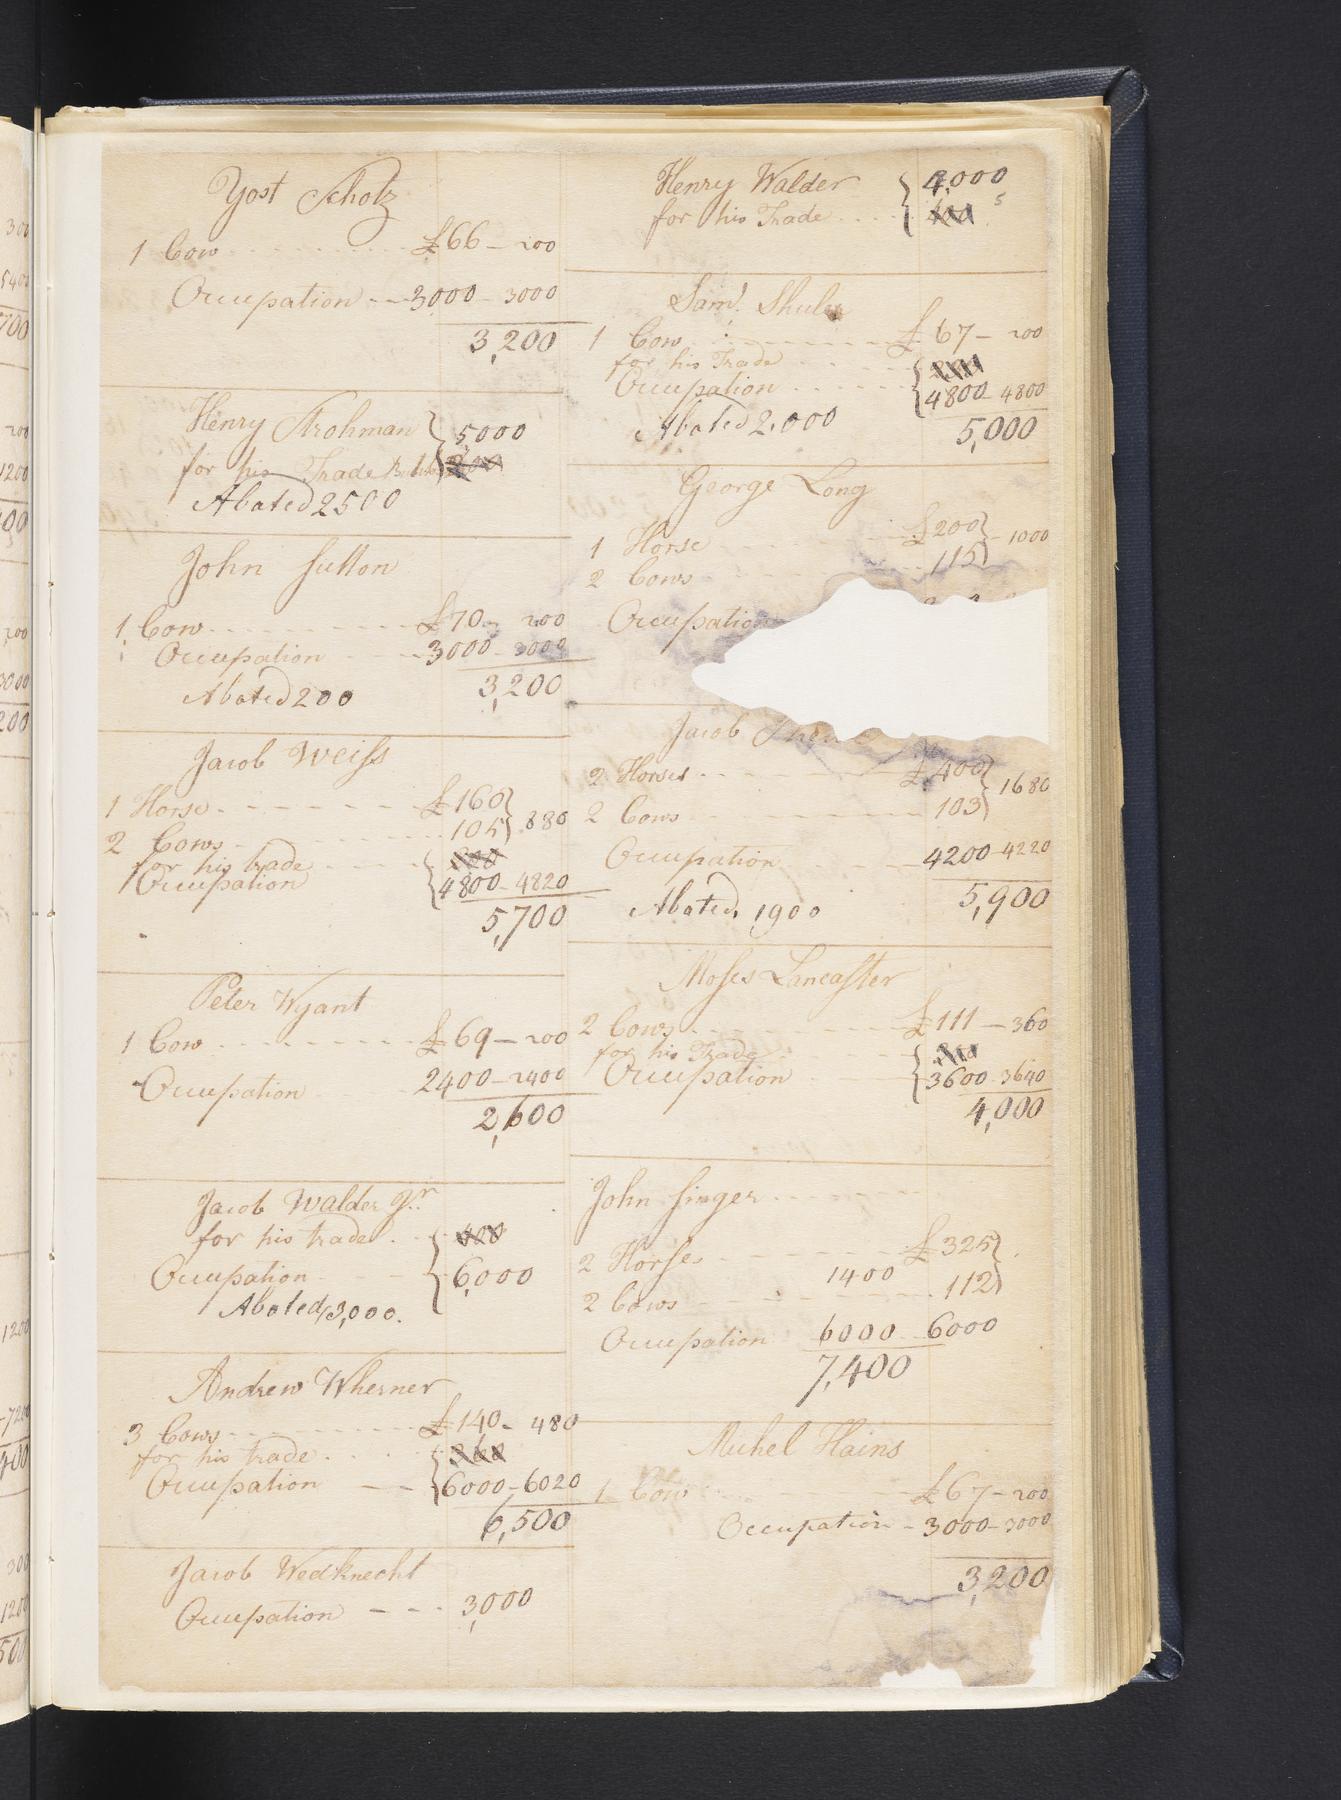 Yost Scholz
1 Cow £66 - 200
Occupation 3000 - 3000
3,200
Henry Strohman 5,000
for his Trade
Abated 2500
John Sutton
1 Cow £70 - 200
Occupation 3000 - 3000
3,200
Abated 200
Jacob Weiss
1 Horse £160
2 Cows 105 } 880
for his trade
Occupation 4800 - 4820
5,700
Peter Wyant
1 Cow £69 - 200
Occupation 2400 - 2400
2,600
Jacob Walder Jr.
for his trade 400
Occupation 6,000
Abated 3,000.
Andrew Wherner
3 Cows £140 - 480
for his trade 360
Occupation 6000 - 6020
6,500
Jacob Wedknecht
Occupation 3,000
Henry Walder 4,000
for his Trade
Saml. Shuler
1 Cow £67 - 200
for his Trade
Occupation 4800 - 4800
Abated 2,000 5,000
George Long
1 Horse £200
2 Cows 115 } - 1000
Occupation
Jacob
2 Horses £400
2 Cows 103 } 1680
Occupation 4200 - 4220
5,900
Abated, 1900
Moses Lancaster
2 Cows £111 - 360
for his Trade
Occupation 3600 - 3640
4,000
John Singer
2 Horses £325
1400
2 Cows 112
Occupation 6000 6000
7,400
Michel Hains
1 Cow £67 - 200
Occupation - 3000 - 3000
3,200
300
5400
700
200
1200
200
3000
200
1200
7200
400
300
1200
500